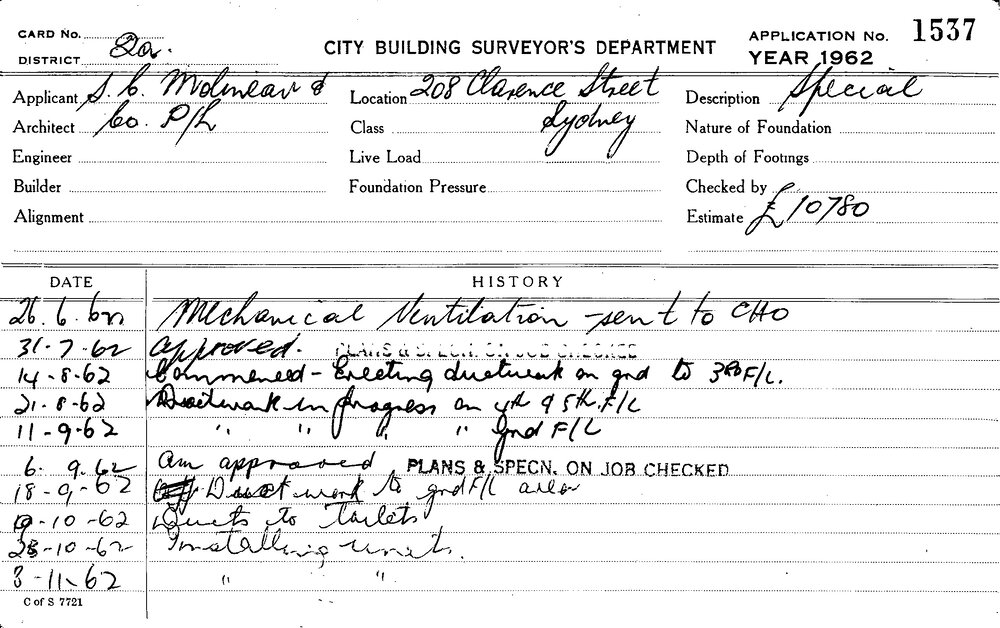 CARD No.
DISTRICT 2a.
CITY BUILDING SURVEYOR'S DEPARTMENT
APPLICATION No. 1537
YEAR 1962
Applicant S. C. Molineaux &
Architect Co. P/L
Engineer
Builder
Alignment
Location 208 Clarence Street
Class Sydney
Live Load
Foundation Pressure
Description Special
Nature of Foundation
Depth of Footings
Checked by
Estimate £10780
DATE HISTORY
26.6.62 Mechanical Ventilation - sent to CHO
31-7-62 approved. PLANS & SPECN. ON JOB CHECKED
14-8-62 Commenced - Erecting ductwork on gnd to 3rd F/L.
21-8-62 Ductwork in progress on 4th & 5th. F/L
11-9-62 " " " " gnd F/L
6. 9.62 am approved PLANS & SPECN. ON JOB CHECKED
18-9-62 Ductwork to gnd F/L area
9-10-62 Ducts to Toilets
23-10-62 Installing units.
3-11-62 " "
C of S 7721